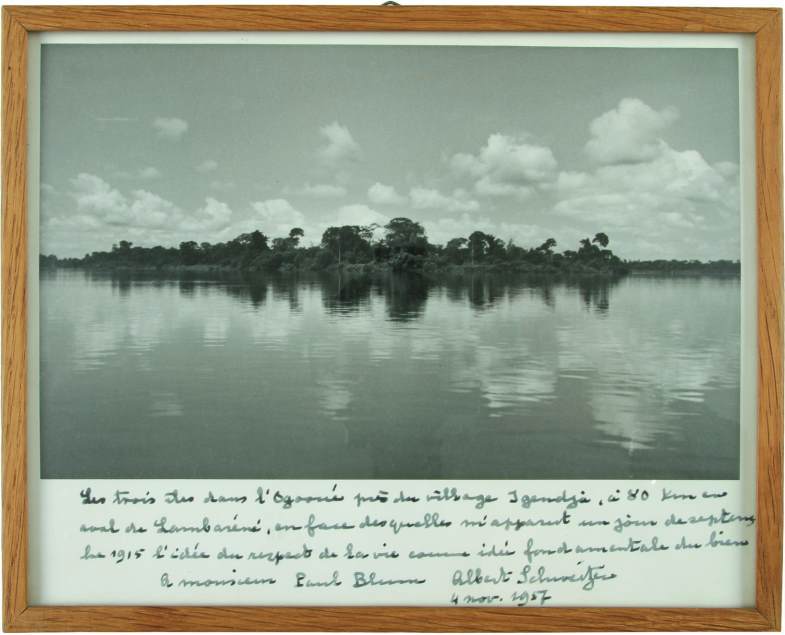 Les trois îles dans l'Ogooué près du village Igendja, à 80 Km en
aval de Lambaréné, en face desquelles m'apparut un jour de septem
bre 1915 l'idée du respect de la vie comme idée fondamentale du bien
A monsieur Paul Blum Albert Schweitzer
4 nov. 1957